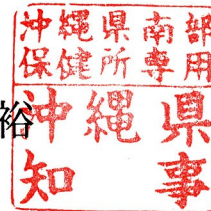 沖縄県南部
保健所専用
裕
沖縄県
知事